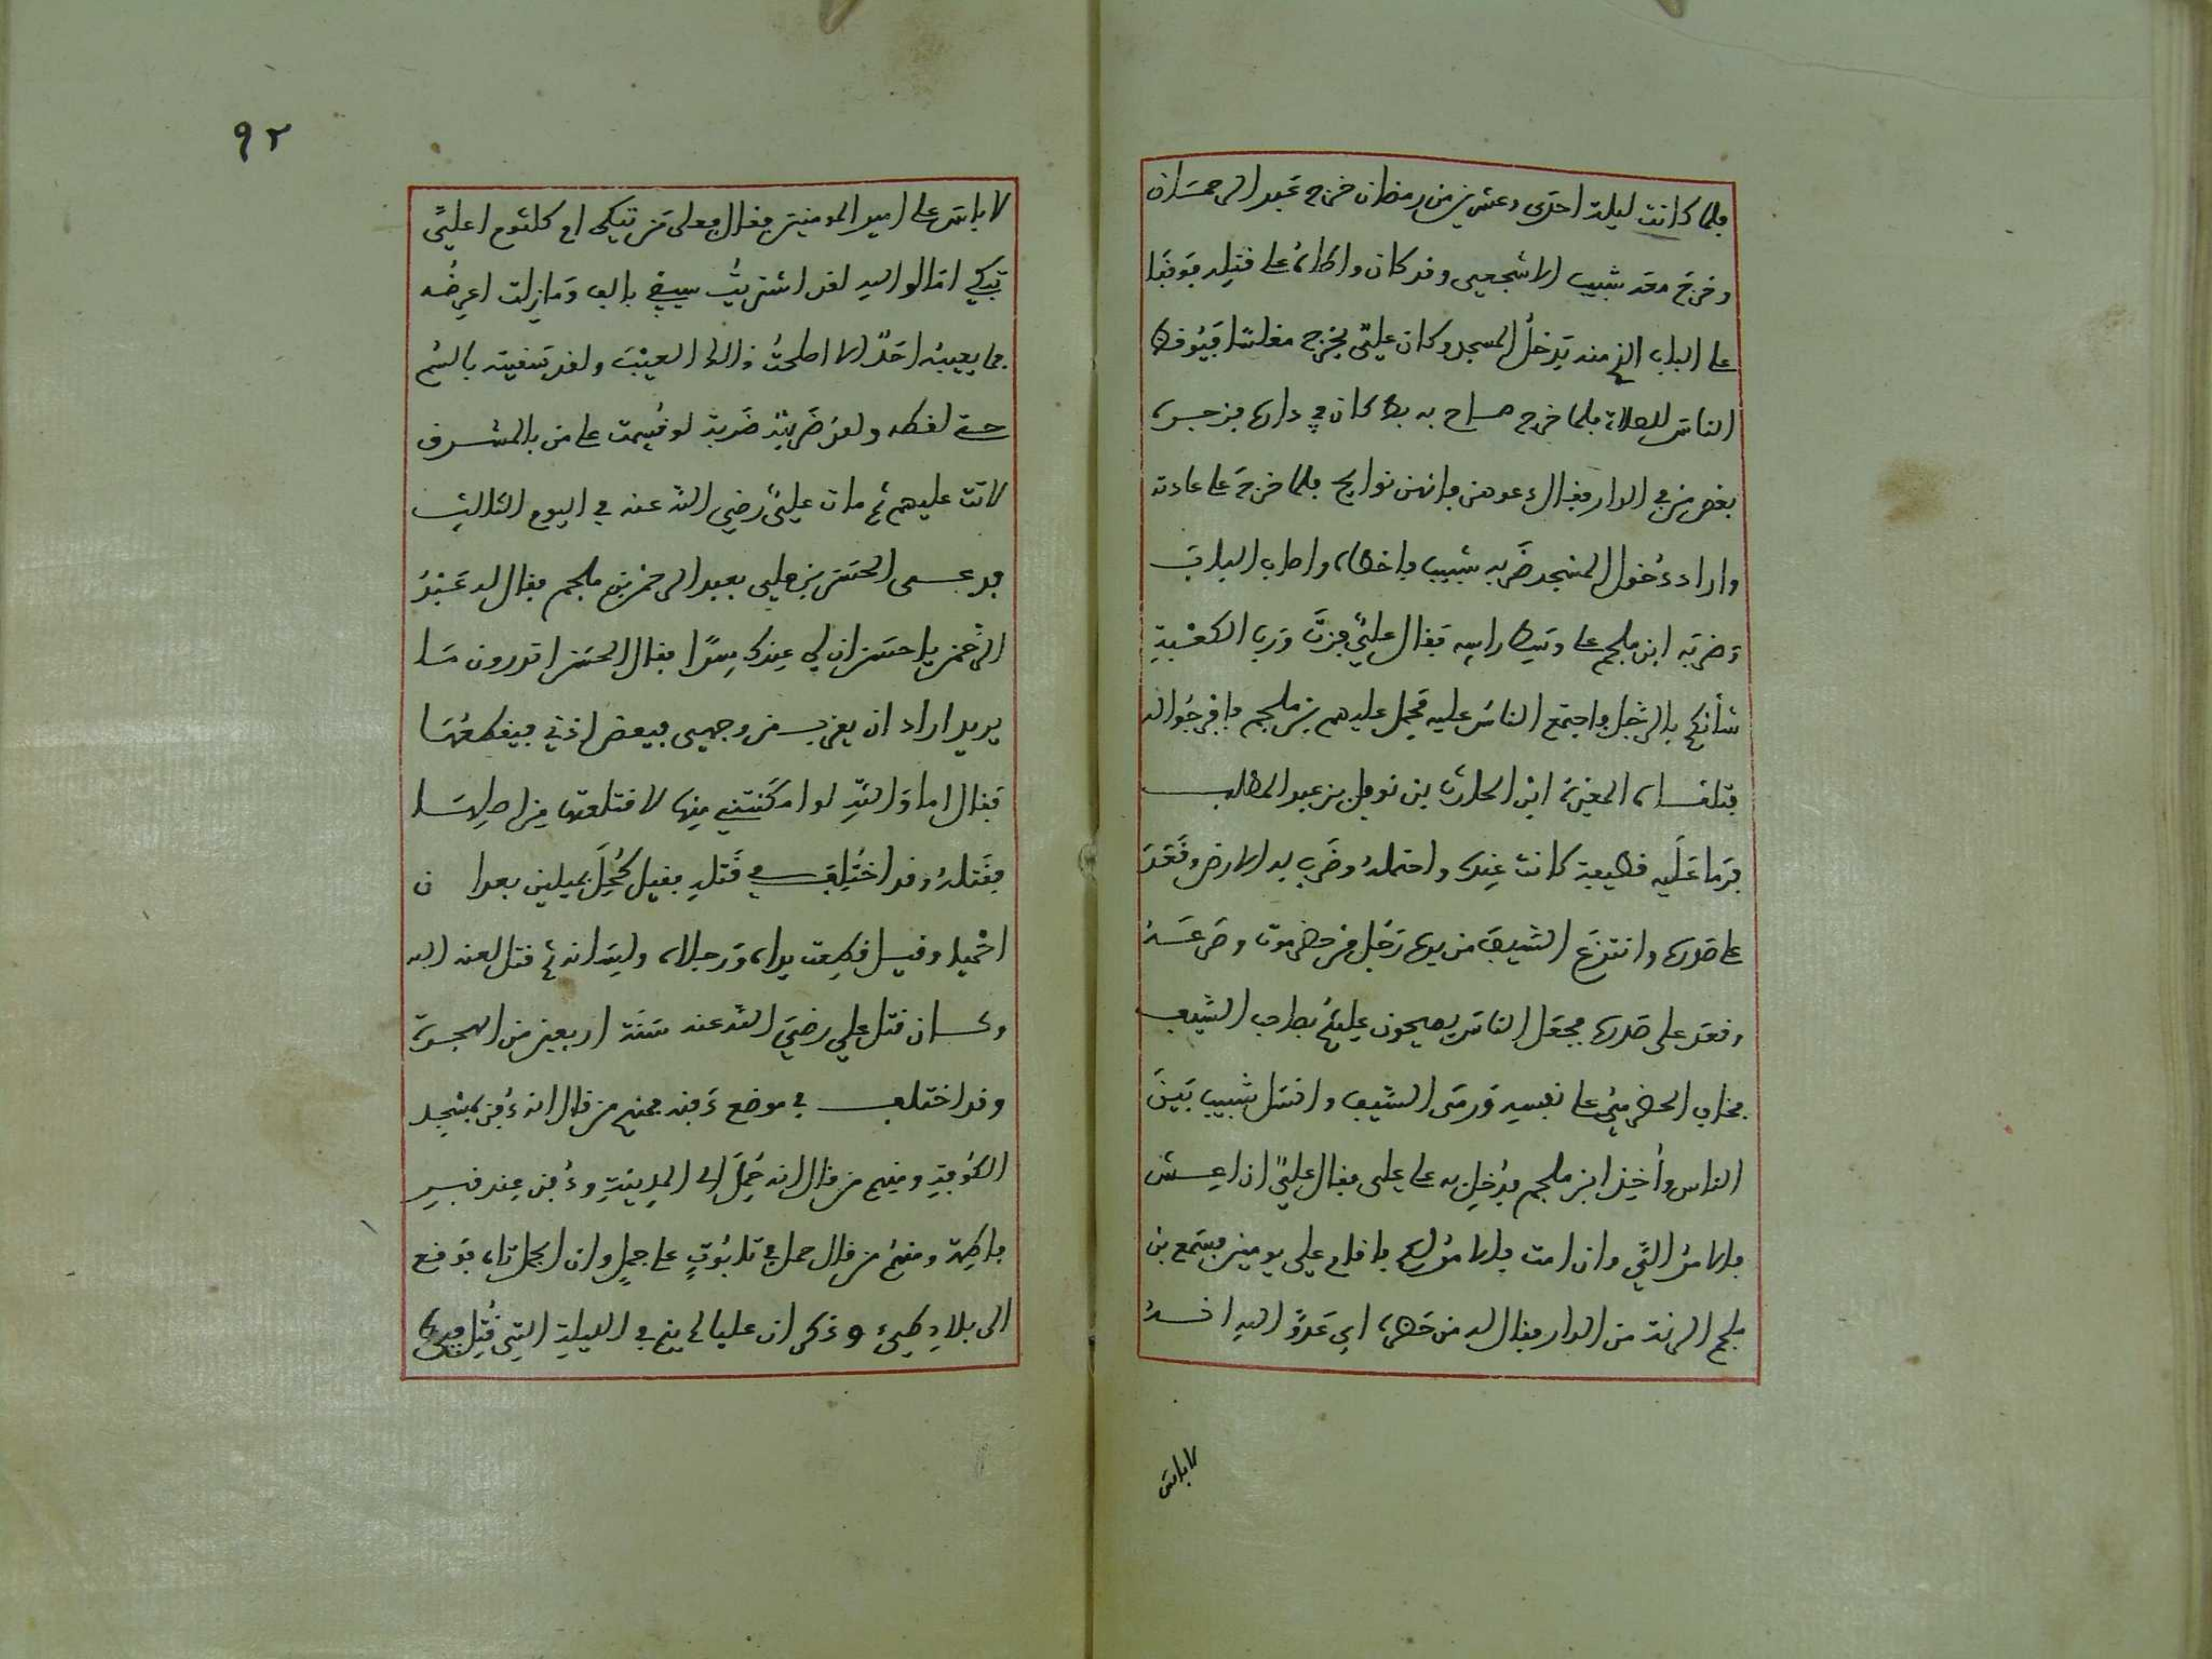 فلما كانت ليلة احدى وعشرين من رمضان خرج عبد الرحمان
وخرج معه شبيب الاشجعي وقد كان واطاه على قتله فوقفا
على الباب الذي منه يدخل المسجد وكان علي يخرج مغلسا فيوقظ
الناس للصلاة فلما خرج صاح به بط كان في داره فزجره
بعض من في الدار فقال دعوهن فانهن نوايح فلما خرج على عادته
واراد دخول المسجد ضربه شبيب فاخطاه واصاب الباب
وضربه ابن ملجم على وسط راسه فقال علي فزت ورب الكعبة
شأنكم بالرجل فاجتمع الناس عليه فحمل عليهم بن ملجم فافرجوا له
فتلقاه المغيرة ابن الحارث بن نوفل بن عبد المطلب
فرما عليه قطيفة كانت عنده واحتمله وضرب به الارض وقعد
على صدره وانتزع السيف من يده رجل من حضرموت وصرعه
وقعد على صدره فجعل الناس يصيحون عليكم بصاحب السيف
فخاف الحضرمي على نفسه ورمى السيف وانسل شبيب بين
الناس وأخذ ابن ملجم فدخل به على علي فقال علي ان اعش
فالامر الي وان امت فالامر لكم فاقام علي يومين فسمع بن
ملجم الرنة من الدار فقال له من حضره اي عدو الله انه
لا باس
٩٢
لا باس على امير المومنين فقال فعلى من تبكي ام كلثوم اعلي
تبكي اما والله لقد اشتريت سيفي بالف وما زلت اعرضه
فما يعيبه احد الا اصلحت ذالك العيب ولقد سقيته بالسم
حتى لفظه ولقد ضربته ضربة لو قسمت على من بالمشرق
لاتت عليهم ثم مات علي رضي الله عنه في اليوم الثالث
فدعى الحسن بن علي بعبد الرحمن بن ملجم فقال له عبد
الرحمن يا حسن ان لي عندك سرا فقال الحسن اتدرون ما
يريد اراد ان يقرب من وجهي فيعض اذني فيقطعها
فقال اما والله لو امكنتني منها لاقتلعتها من اصلها
فقتله وقد اختلف في قتله فقيل كحل بميلين بعد ان
احميا وقيل قطعت يداه ورجلاه ولسانه ثم قتل لعنه الله
وكان قتل علي رضي الله عنه سنة اربعين من الهجرة
وقد اختلف في موضع دفنه فمنهم من قال انه دفن بمسجد
الكوفة ومنهم من قال انه حمل الى المدينة ودفن عند قبر
فاطمة ومنهم من قال حمل في تابوت على جمل وان الجمل تاه فوقع
الى بلاد طيء وذكر ان عليا لم ينم في الليلة التي قتل فيها